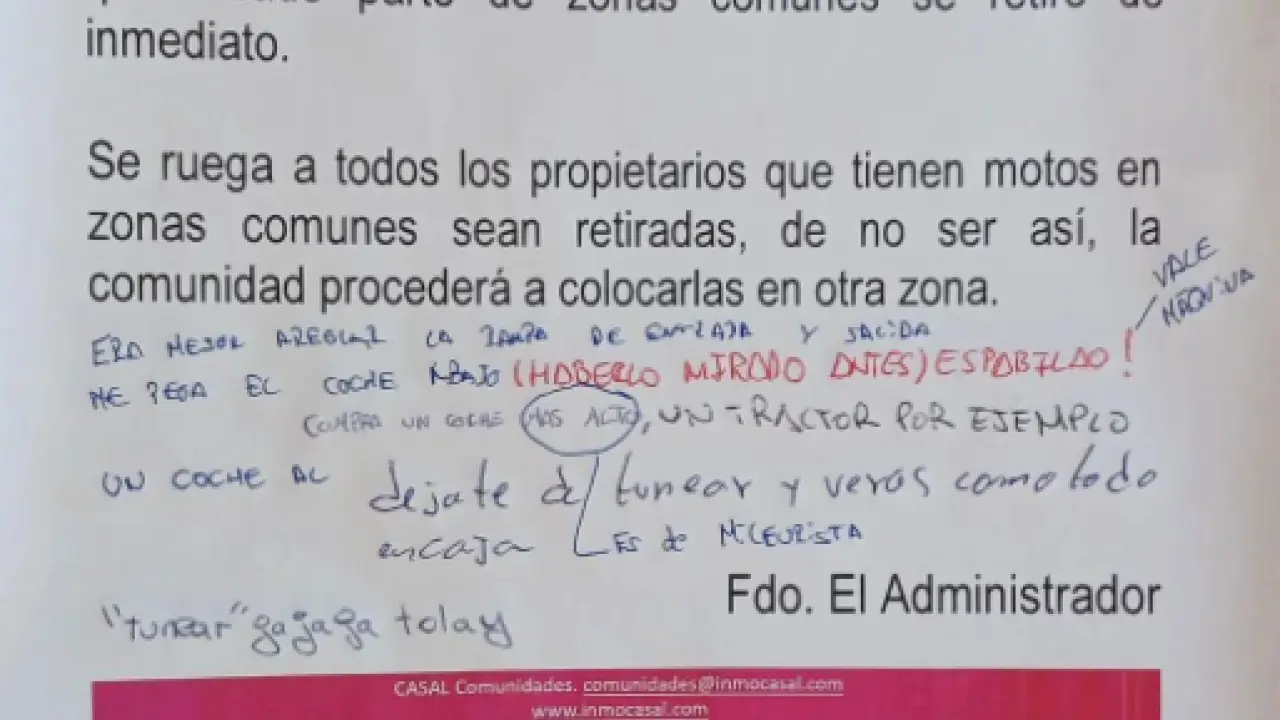 parte de zonas comunes se retire de
inmediato.
Se ruega a todos los propietarios que tienen motos en
zonas comunes sean retiradas, de no ser así, la
comunidad procederá a colocarlas en otra zona.
VALE
MÁQUINA
ERA MEJOR AREGLAR LA RAMPA DE ENTRADA Y SALIDA
ME PEGA EL COCHE ABAJO (HABERLO MIRADO ANTES) ESPABILAO!
COMPRA UN COCHE MAS ALTO, UN TRACTOR POR EJEMPLO
UN COCHE AL
dejate de tunear y veras como todo
encaja
ES de MILEURISTA
Fdo. El Administrador
"tunear" gajaja tolay
CASAL Comunidades. comunidades@inmocasal.com
www.inmocasal.com